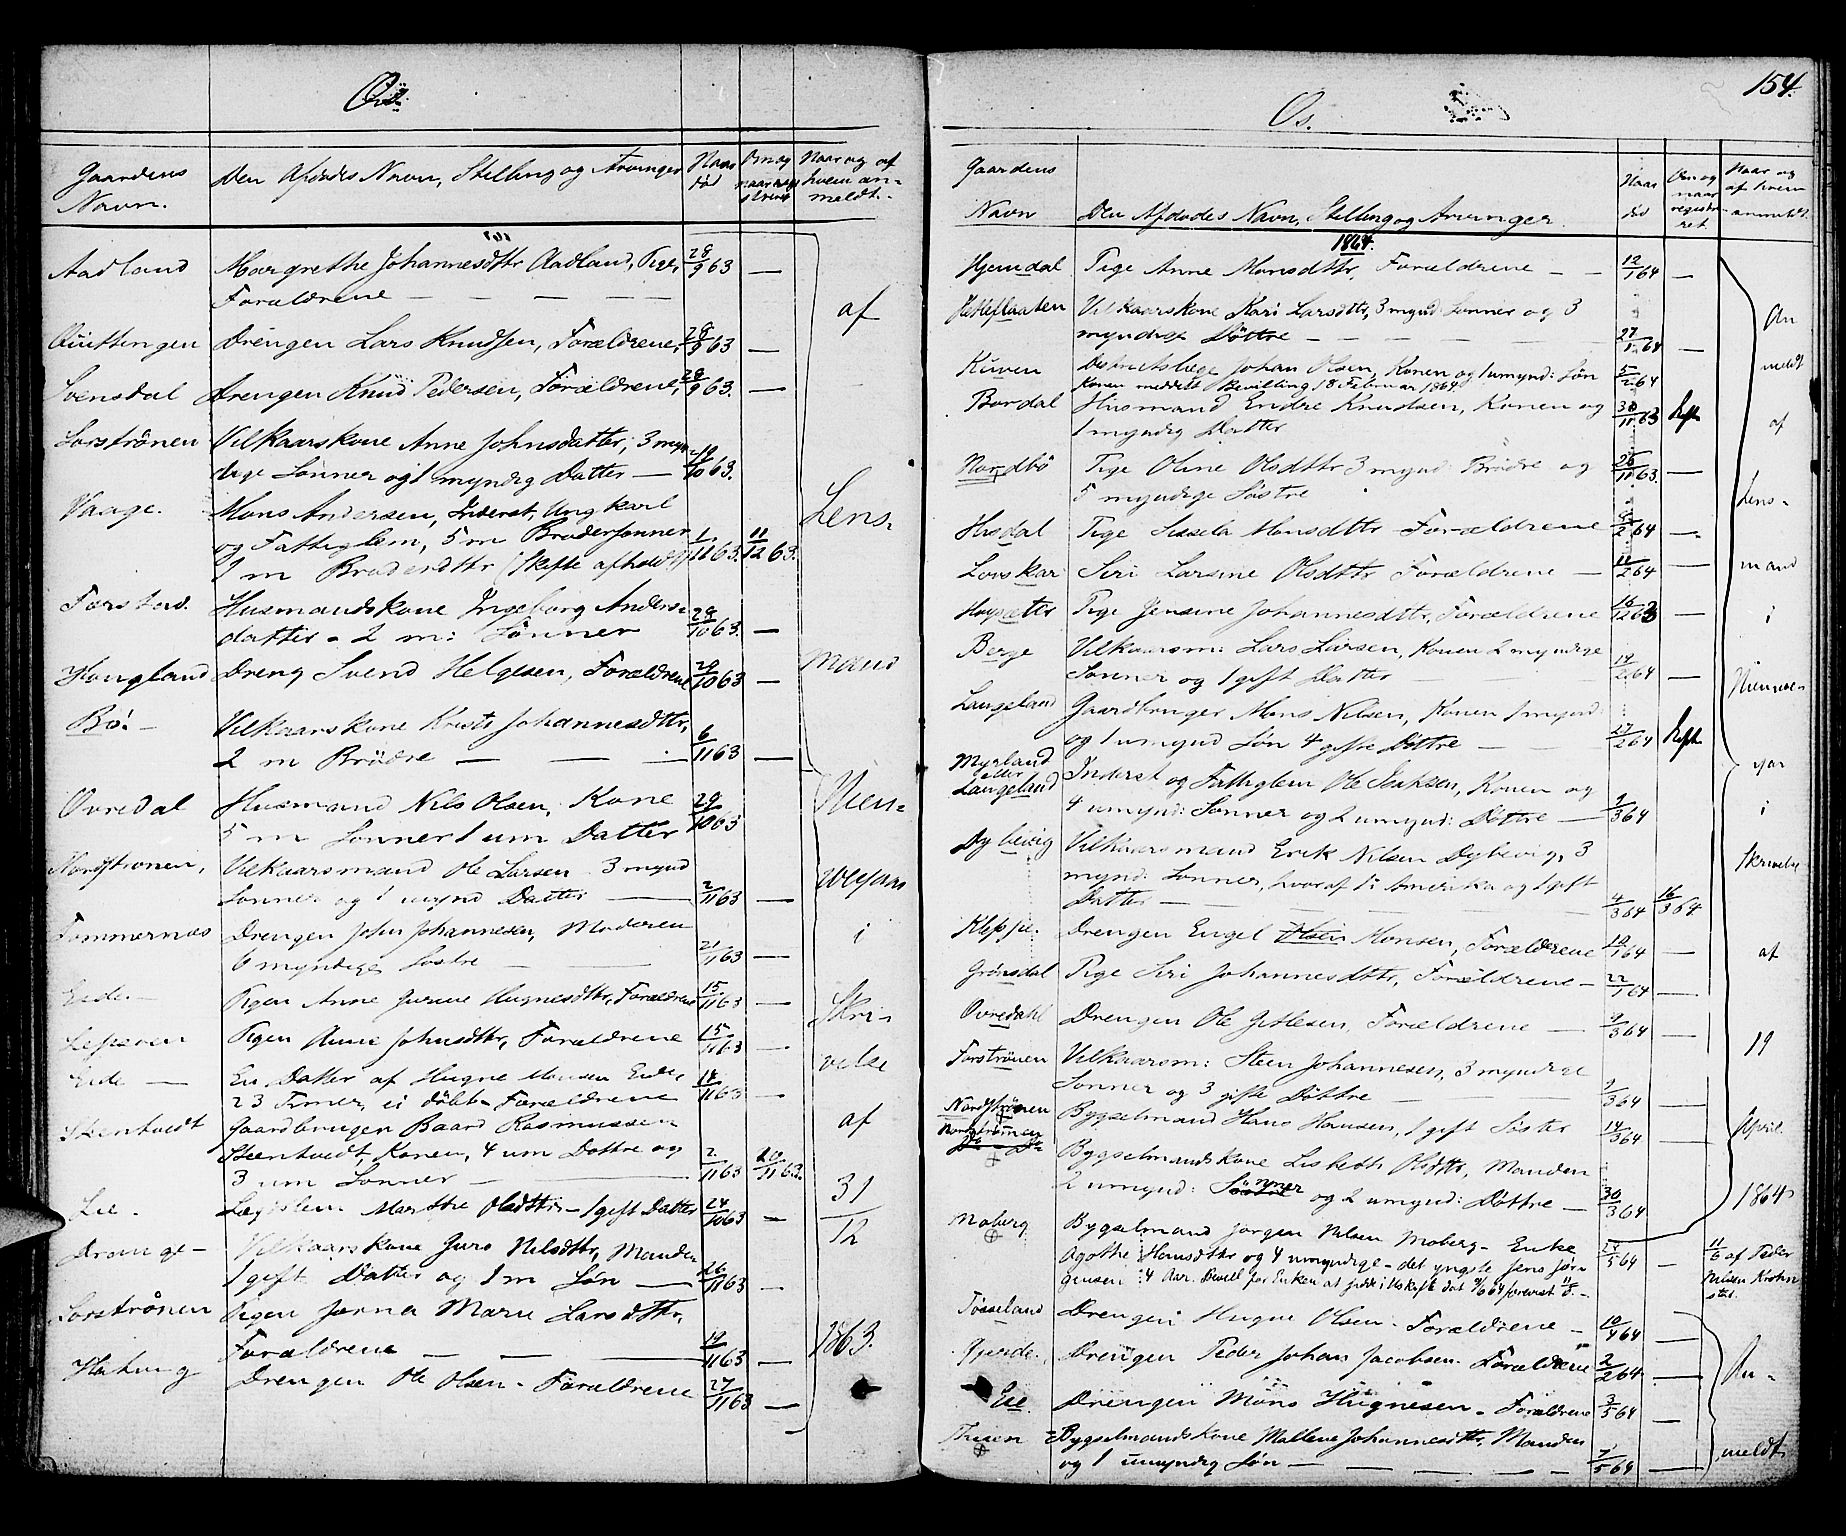 Os.
Gaardens Navn.
Den Afdødes Navn, Stilling og Arvinger
Naar død
Om og naar regi streret
Naar og af hvem an- meldt.
Aadland
Margrethe Johannesdttr Aadland, Pige,
Forældrene — — — —
28/9 63 —
Drengen Lars Knudsen, Forældrene,
28/9 63 —
Svensdal
Drengen Knud Pedersen, Forældrene,
28/9 63. —
Sørstrønen
Vilkaarskone Anne Johnsdatter, 3 myn
dige Sønner og 1 myndig Datter —
10 63.
Vaage.
Mons Andersen, Inderst, Ungkarl
og Fattiglem, 5 m Brodersønner
1 m Broderdttr (Skifte afholdt)
1/11 63. 11/12 63.
Husmandskone Ingeborg Anders-
datter - 2 m: Sønner
29/10 63. —
Haugland
Dreng Svend Helgesen, Forældrene
29/10 63 —
Bø.
Vilkaarskone Kristi Johannesdttr,
2 m Brødre — — —
6/11 63 —
Øvredal
Husmand Nils Olsen, Kone
5 m Sønner 1 um Datter
29/10 63
Nordstrønen,
Vilkaarsmand Ole Larsen 3 mynd
Sønner og 1 mynd Datter —
2/11 63 —
Tømmernæs
Drengen John Johannesen, Moderen
6 myndige Søstre —
21/11 63 —
Eide —
Pigen Anne Gurine Hugnesdttr, Forældrene
15/11 63 —
Lepsøen
Pigen Anne Johnsdttr, Forældrene
15/11 63 —
Eide —
En Datter af Hugne Monsen Eide,
23 Timer, ei døbt - Forældrene
18/11 63 —
Gaardbrugen Baard Rasmussen
Konen, 4 um Døttre og
3 um Sønner —
2/11 63 20/11 63.
Lie.
Lægdslem Marthe Olsdttr - 1 gift Datter
24/10 63 —
Drange —
Vilkaarskone Guro Nilsdttr, Manden
1 gift Datter og 1 m Søn —
26/11 63 —
Sørstrønen
Pigen Jorna Marie Larsdttr,
Forældrene — — —
19/11 63 —
Drengen Ole Olsen - Forældrene
27/11 63 —
af
Lens-
mand
i
Skri-
velse
af
31/12
1863.
154.
Os.
Gaardens Navn
Den Afdødes Navn, Stilling og Arvinger
Naar død
Om og naar registre- ret
Naar og af hvem anmeldt
1864.
Hjemdal
Pige Anne Monsdttr, Forældrene — —
12/1 64 —
Hetleflaaten
Vilkaarskone Kari Larsdttr, 3 mynd Sønner og 3
myndige Døttre — — — —
27/1 64 —
Kuven
Distriktslæge Johan Olsen, Konen og 1 umynd: Søn
Konen meddelt Bevilling 18 Februar 1864
5/2 64
Bordal
Husmand Endre Knudsen, Konen og
1 myndig Datter
30/11 63 Skft
Nordbø
Pige Oline Olsdttr 3 mynd: Brødre og
5 myndige Søstre
26/11 63. —
Hasdal
Pige Sissela Monsdttr Forældrene
2 64 —
Lønskar
Siri Larsine Olsdttr Forældrene —
11/2 64 —
Haugsæter
Pige Jensine Johannesdttr, Forældrene
16/12 63
Berge
Vilkaarsm: Lars Larsen, Konen 2 myndige
Sønner og 1 gift Datter —
19/2 64 —
Langeland
Gaardbruger Mons Nilsen, Konen 1 mynd:
og 1 umynd Søn 4 gifte Døttre —
27/2 64 Skft
Myrland
eller
Langeland
Inderst og Fattiglem Ole Isaksen, Konen og
4 umynd: Sønner og 2 umynd: Døttre —
9/3 64
Dybevig
Vilkaarsmand Erik Nilsen Dybevig, 3
mynd: Sønner, hvoraf 1 i Amerika og 1 gift
Datter —
4/3 64 16/3 64
Kleppe.
Drengen Engel Monsen, Forældrene
19/1 64 —
Grønsdal
Pige Siri Johannesdttr, Forældrene —
22/1 64 —
Øvredahl
Drengen Ole Gitlesen, Forældrene —
9/3 64 —
Vilkaarsm: Steen Johannesen, 3 myndige
Sønner og 3 gifte Døttre —
9/3 64 —
Nordstrønen
Bygselmand Hans Hansen, 1 gift Søster
14/3 64 —
Nordstrønen
Bygselmandskone Lisbeth Olsdttr, Manden
2 umynd: Sønner og 2 umynd: Døttre —
30/3 64
Moberg
Bygselmand Jørgen Nilsen Moberg - Enke
Agothe Hansdttr og 4 umyndige - det yngste Jens Jør-
gensen 4 Aar. Bevill for Enken at sidde i Uskift
5 64 —
11/6 af Peder Nilsen Krohn
Tøsseland
Drengen Hugne Olsen - Forældrene —
10/4 64 —
Gjerde.
Drengen Peder Johan Jacobsen. Forældrene
2/2 64. —
Eie
Drengen Mons Hugnesen - Forældrene
3/5 64 —
Thuen
Bygselmandskone Mallene Johannesdttr, Manden
og 1 umyndig Søn — — —
7/5 64 —
An
meldt
af
Lens-
mand
i
i
Skrivelse
af
19
April
1864
An-
meldt